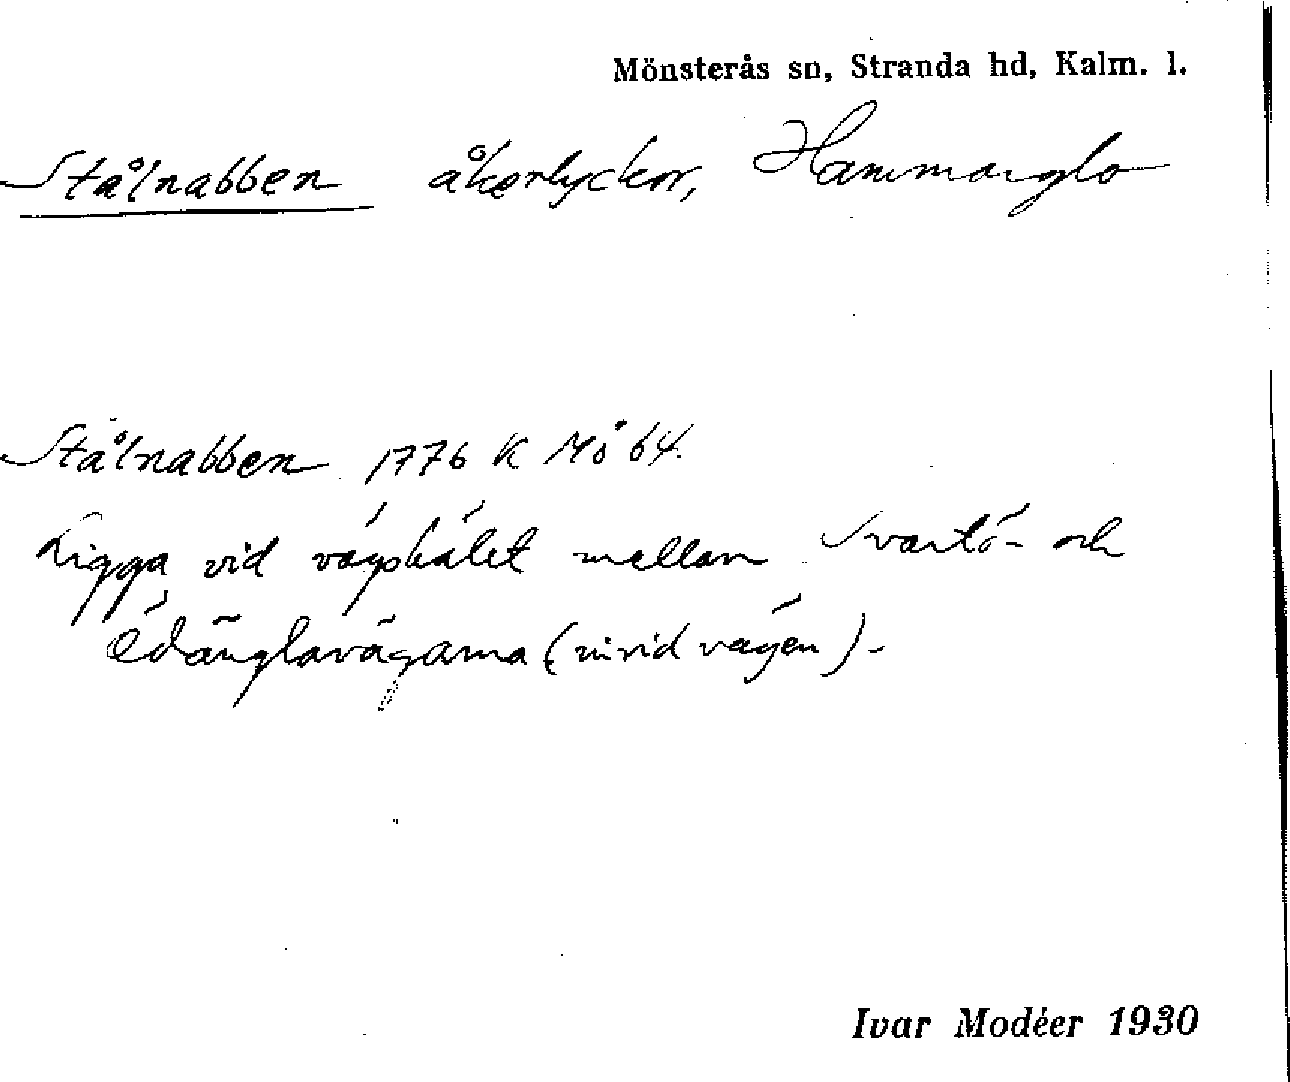 Mönsterås sn, Stranda hd, Kalm. l.
Stålnabben åkerlyckor, Hammarglo
Stålnabben 1776 K Mö 64.
Ligga vid vägskälet mellan Svartö- och
Ödänglavägarna (invid vägen).
Ivar Modéer 1930